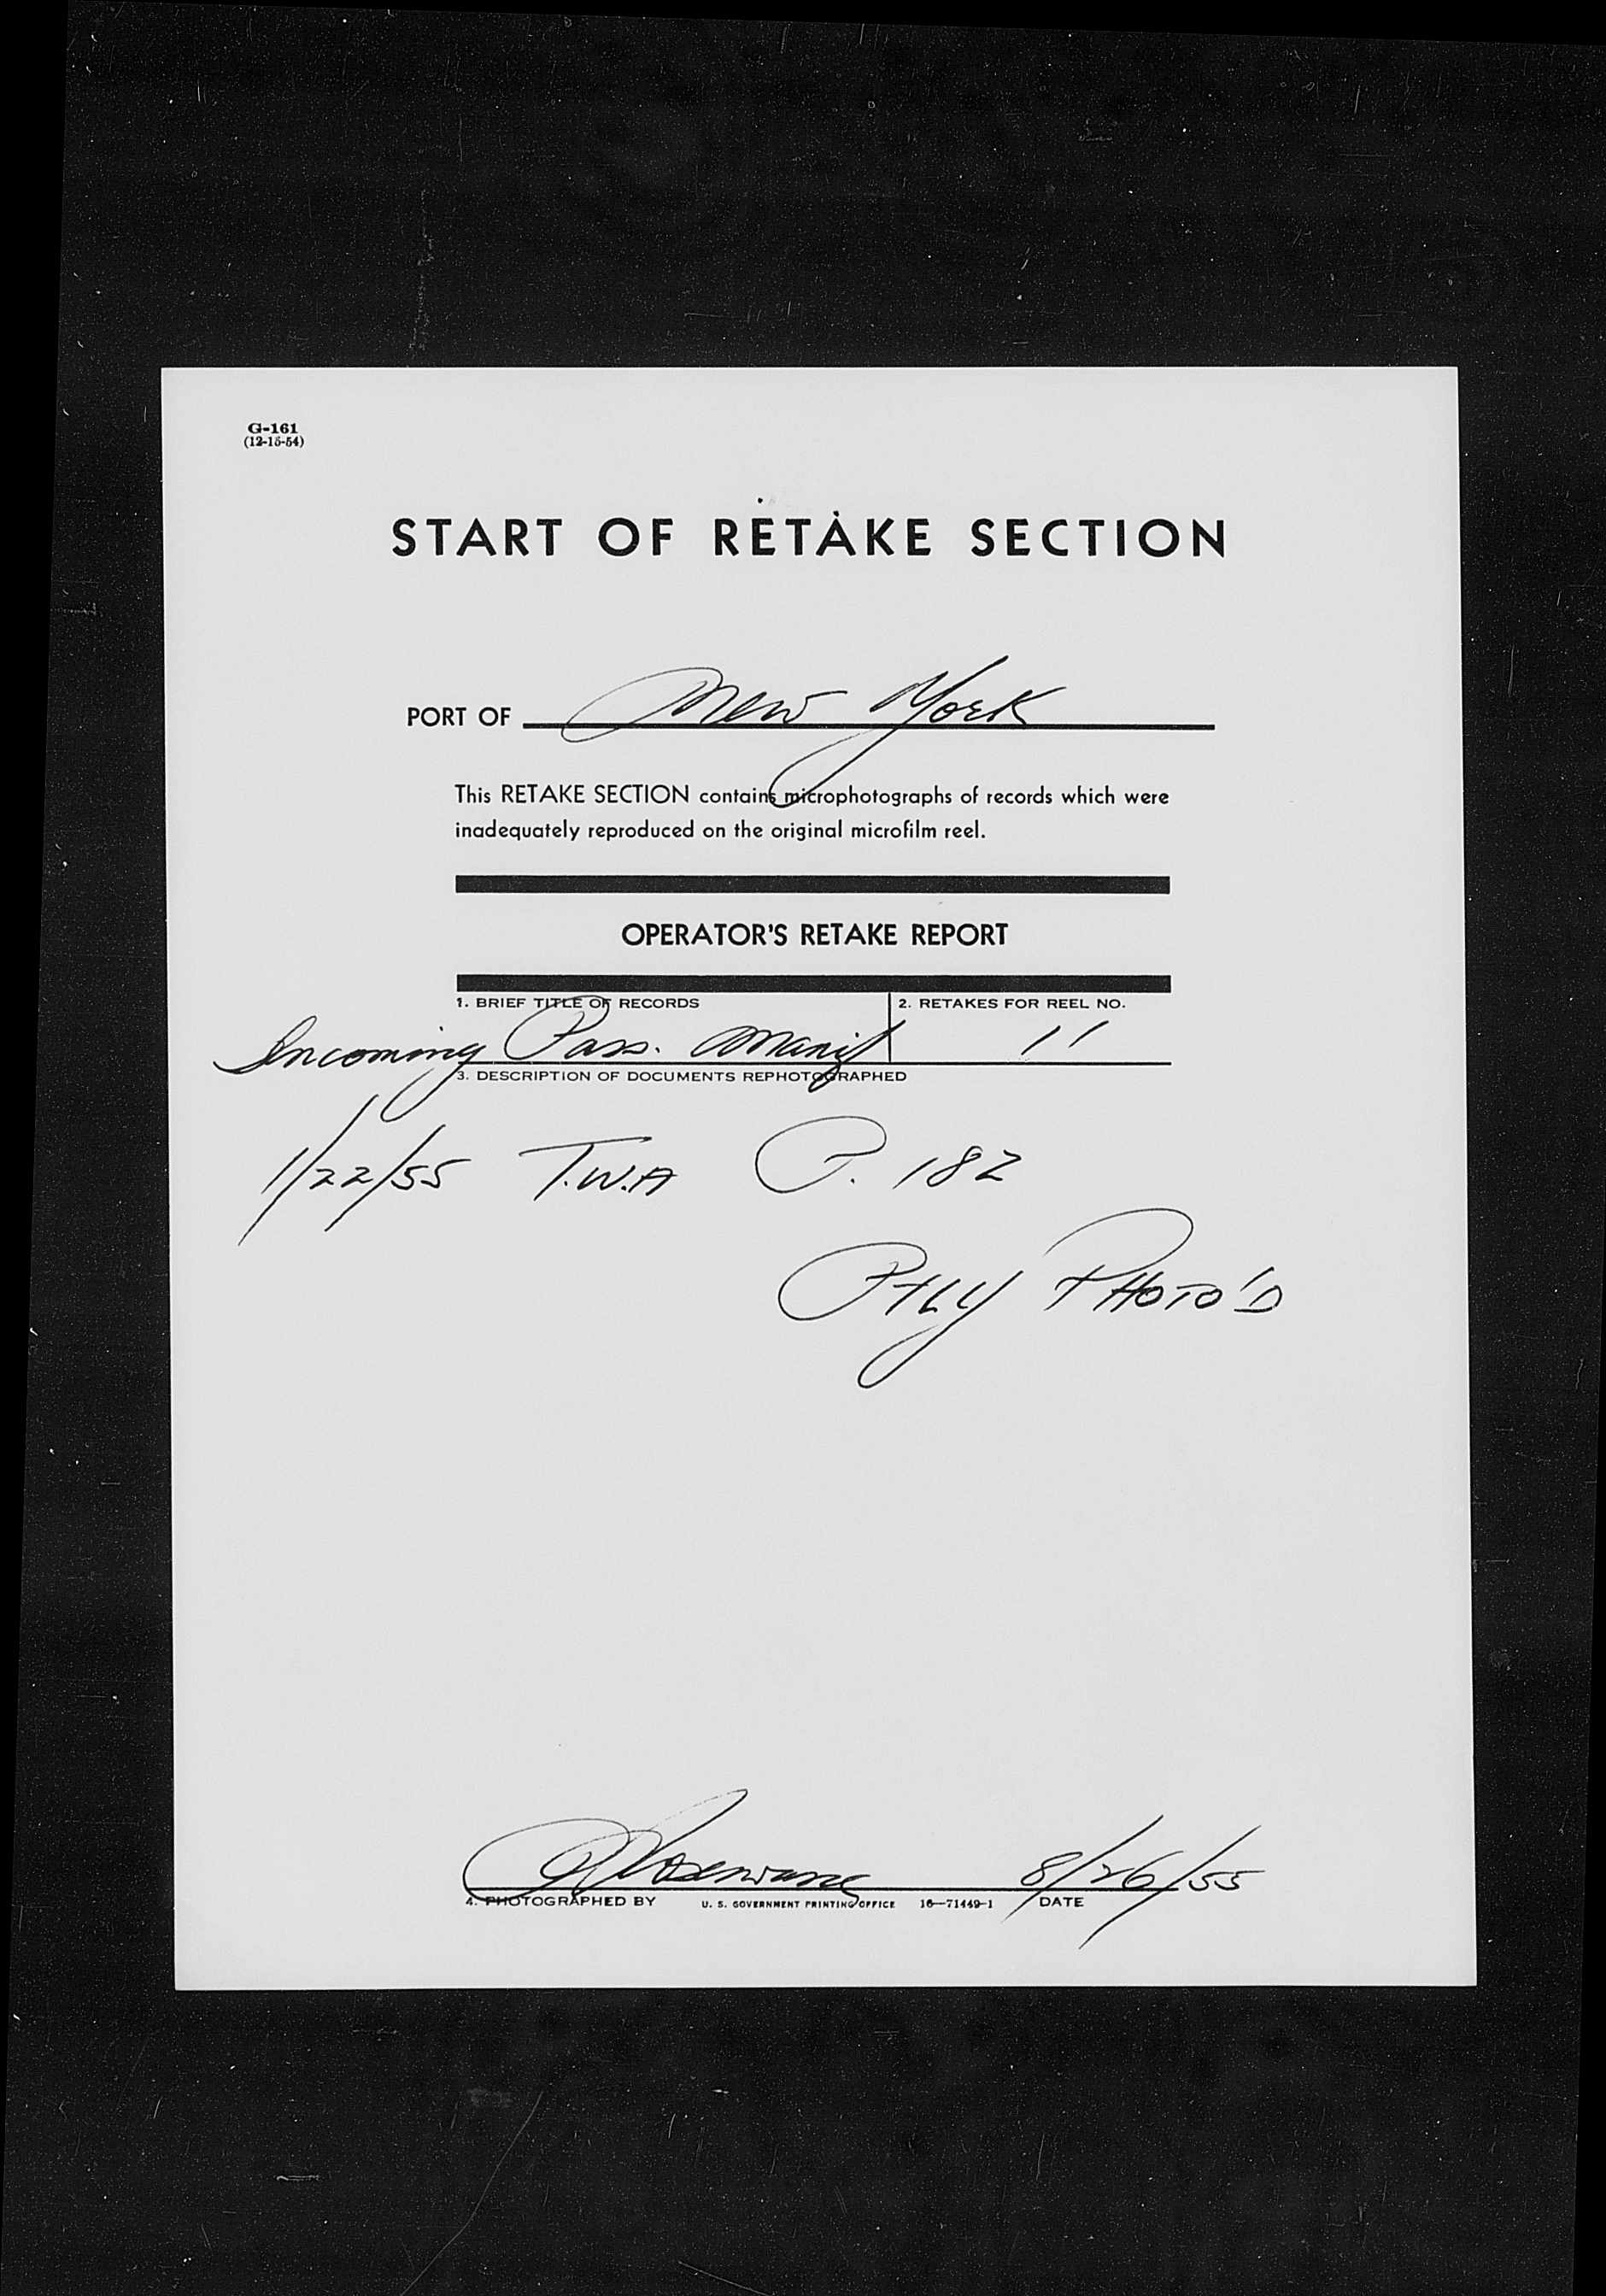 G-161
(12-15-54)
START OF RETAKE SECTION
PORT OF New York
This RETAKE SECTION contains microphotographs of records which were
inadequately reproduced on the original microfilm reel.
OPERATOR'S RETAKE REPORT
1. BRIEF TITLE OF RECORDS 2. RETAKES FOR REEL NO.
Incoming Pass. Manif 11
3. DESCRIPTION OF DOCUMENTS REPHOTOGRAPHED
1/22/55 T.W.A P. 182
PTLY PHOTO'D
8/26/55
4. PHOTOGRAPHED BY U. S. GOVERNMENT PRINTING OFFICE 16—71449-1 DATE